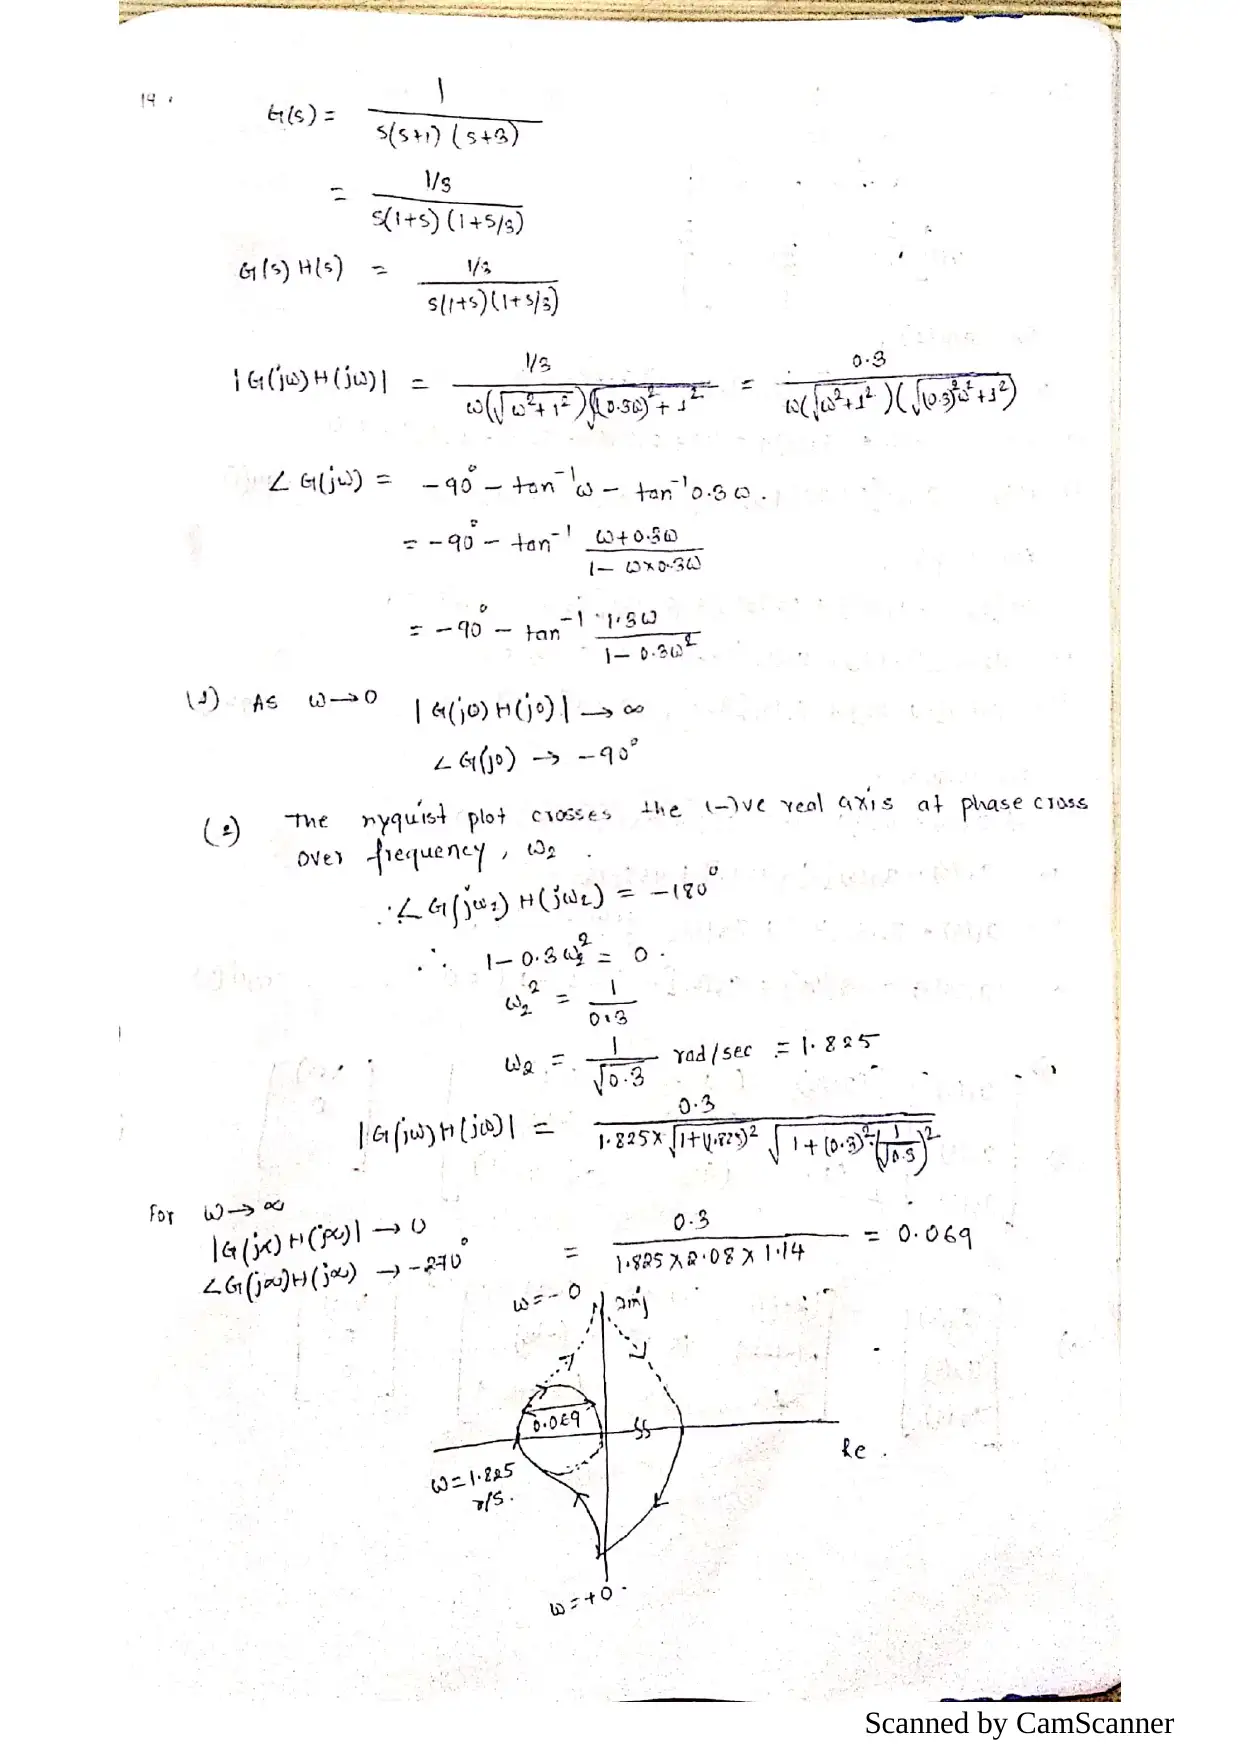 14.
G(s) = 1 / s(s+1) (s+3)
= 1/3 / s(1+s) (1+s/3)
G(s) H(s) = 1/3 / s(1+s)(1+s/3)
|G(jω) H(jω)| = 1/3 / ω(√ω²+1²)√(0.3ω)²+1² = 0.3 / ω(√ω²+1²)(√(0.3)²ω²+1²)
∠ G(jω) = -90° - tan⁻¹ω - tan⁻¹0.3ω.
= -90° - tan⁻¹ ω+0.3ω / 1- ω×0.3ω
= -90° - tan⁻¹ 1.3ω / 1- 0.3ω²
(1) As ω→0 |G(j0) H(j0)| → ∞
∠G(j0) → -90°
(2) The nyquist plot crosses the (-)ve real axis at phase cross
over frequency, ω2.
∴∠G(jω2) H(jω2) = -180°
∴ 1-0.3ω2² = 0.
ω2² = 1 / 0.3
ω2 = 1 / √0.3 rad/sec = 1.825
|G(jω)H(jω)| = 0.3 / 1.825×√1+(1.825)² √1+(0.3)²·(1/√0.3)²
For ω→∞
|G(j∝) H(j∝)| → 0
= 0.3 / 1.825×2.08×1.14 = 0.069
∠G(j∞)H(j∞) → -270°
ω=-0
Imj
0.069
Re.
ω=1.825
r/s.
ω=+0.
Scanned by CamScanner